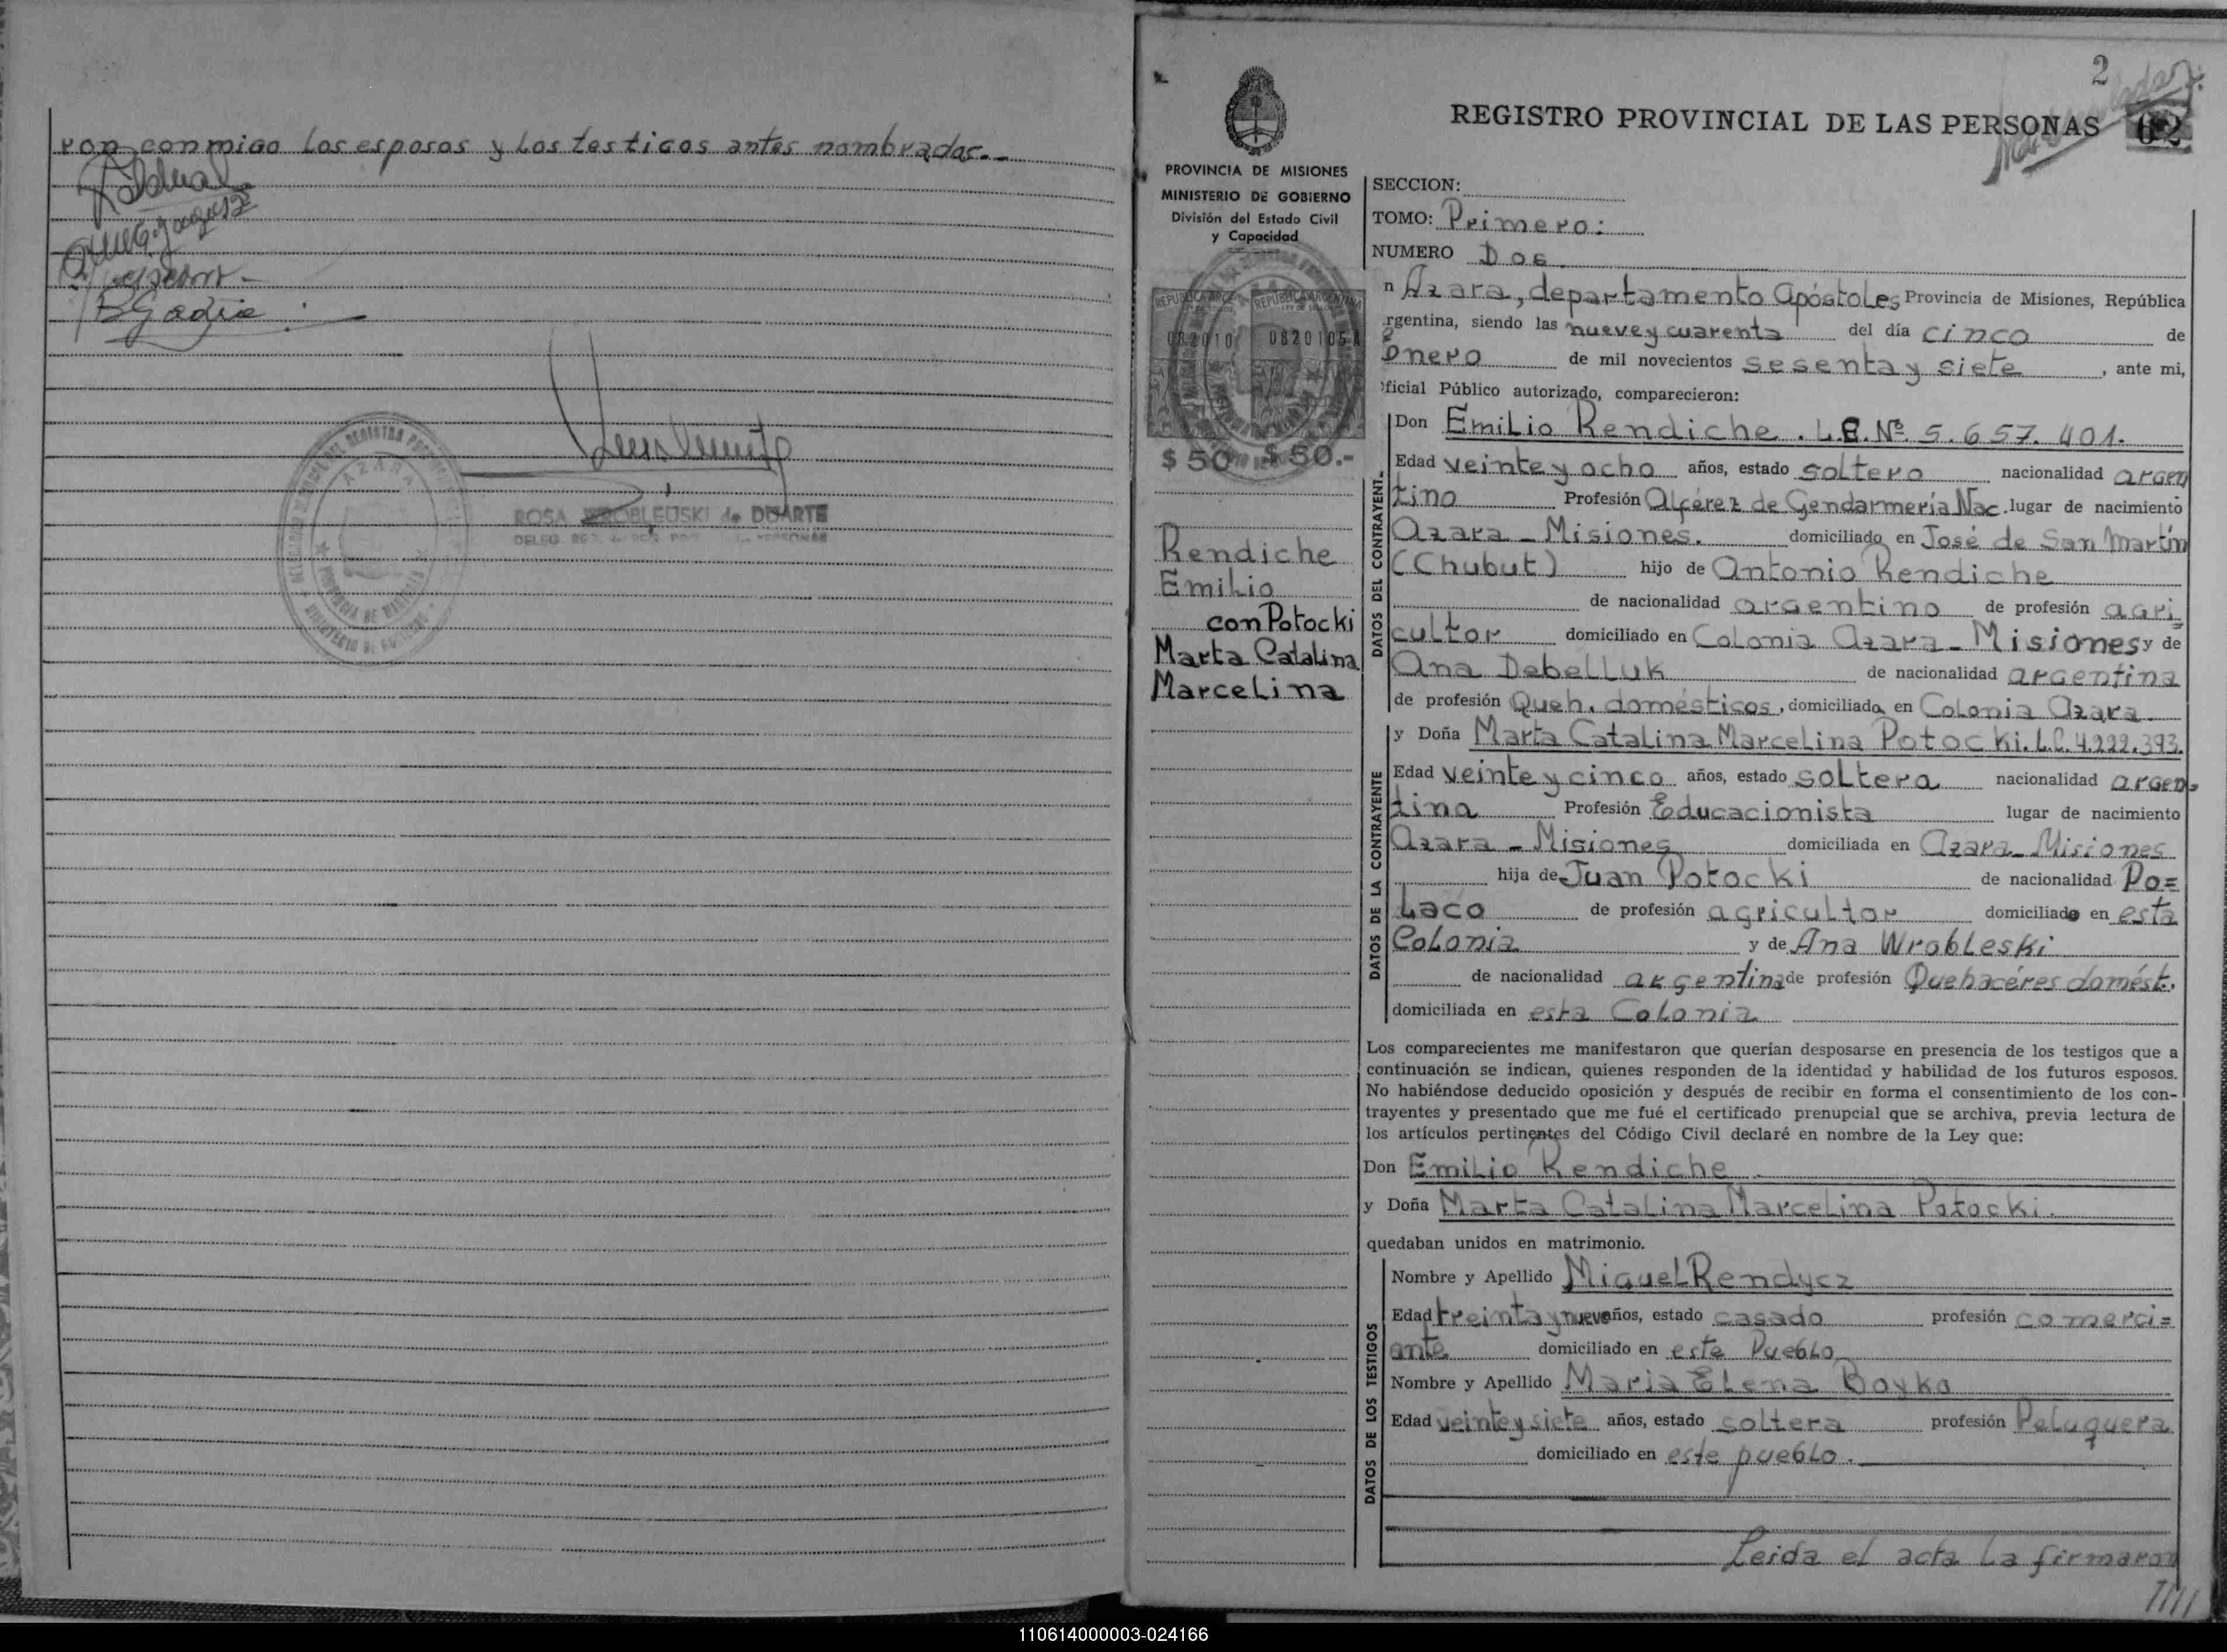 ron conmigo los esposos y los testigos antes nombrados.-
AZARA
PROVINCIA DE MISIONES
ROSA WROBLEUSKI de DUARTE
2
REGISTRO PROVINCIAL DE LAS PERSONAS
62
PROVINCIA DE MISIONES
MINISTERIO DE GOBIERNO
División del Estado Civil
y Capacidad
REPUBLICA ARGENTINA
082010
0820105A
$ 50 $ 50.-
Rendiche
Emilio
con Potocki
Marta Catalina
Marcelina
SECCION:
TOMO: Primero:
NUMERO Dos
n Azara, departamento Apóstoles Provincia de Misiones, República
rgentina, siendo las nueve y cuarenta del día cinco de
Enero de mil novecientos sesenta y siete, ante mi,
Oficial Público autorizado, comparecieron:
DATOS DEL CONTRAYENT.
Don Emilio Rendiche. L.E. Nº 5.657.401.
Edad veinte y ocho años, estado soltero nacionalidad argen
tino Profesión Alférez de Gendarmería Nac. lugar de nacimiento
Azara - Misiones. domiciliado en José de San Martín
(Chubut) hijo de Antonio Rendiche
de nacionalidad argentino de profesión agri=
cultor domiciliado en Colonia Azara - Misiones y de
Ana Debelluk de nacionalidad argentina
de profesión Queh. domésticos, domiciliada en Colonia Azara.
DATOS DE LA CONTRAYENTE
y Doña Marta Catalina Marcelina Potocki. L.C. 4.222.393.
Edad veinte y cinco años, estado soltera nacionalidad argen=
tina Profesión Educacionista lugar de nacimiento
Azara - Misiones domiciliada en Azara - Misiones
hija de Juan Potocki de nacionalidad Po=
laco de profesión agricultor domiciliado en esta
Colonia y de Ana Wrobleski
de nacionalidad argentina de profesión Quehacéres domést.
domiciliada en esta Colonia
Los comparecientes me manifestaron que querían desposarse en presencia de los testigos que a
continuación se indican, quienes responden de la identidad y habilidad de los futuros esposos.
No habiéndose deducido oposición y después de recibir en forma el consentimiento de los con-
trayentes y presentado que me fué el certificado prenupcial que se archiva, previa lectura de
los artículos pertinentes del Código Civil declaré en nombre de la Ley que:
Don Emilio Rendiche
y Doña Marta Catalina Marcelina Potocki.
quedaban unidos en matrimonio.
DATOS DE LOS TESTIGOS
Nombre y Apellido Miguel Rendycz
Edad treinta y nueve años, estado casado profesión comerci=
ante domiciliado en este Pueblo
Nombre y Apellido Maria Elena Boyko
Edad veinte y siete años, estado soltera profesión Peluquera
domiciliado en este pueblo.
Leida el acta la firmaron
////
110614000003-024166